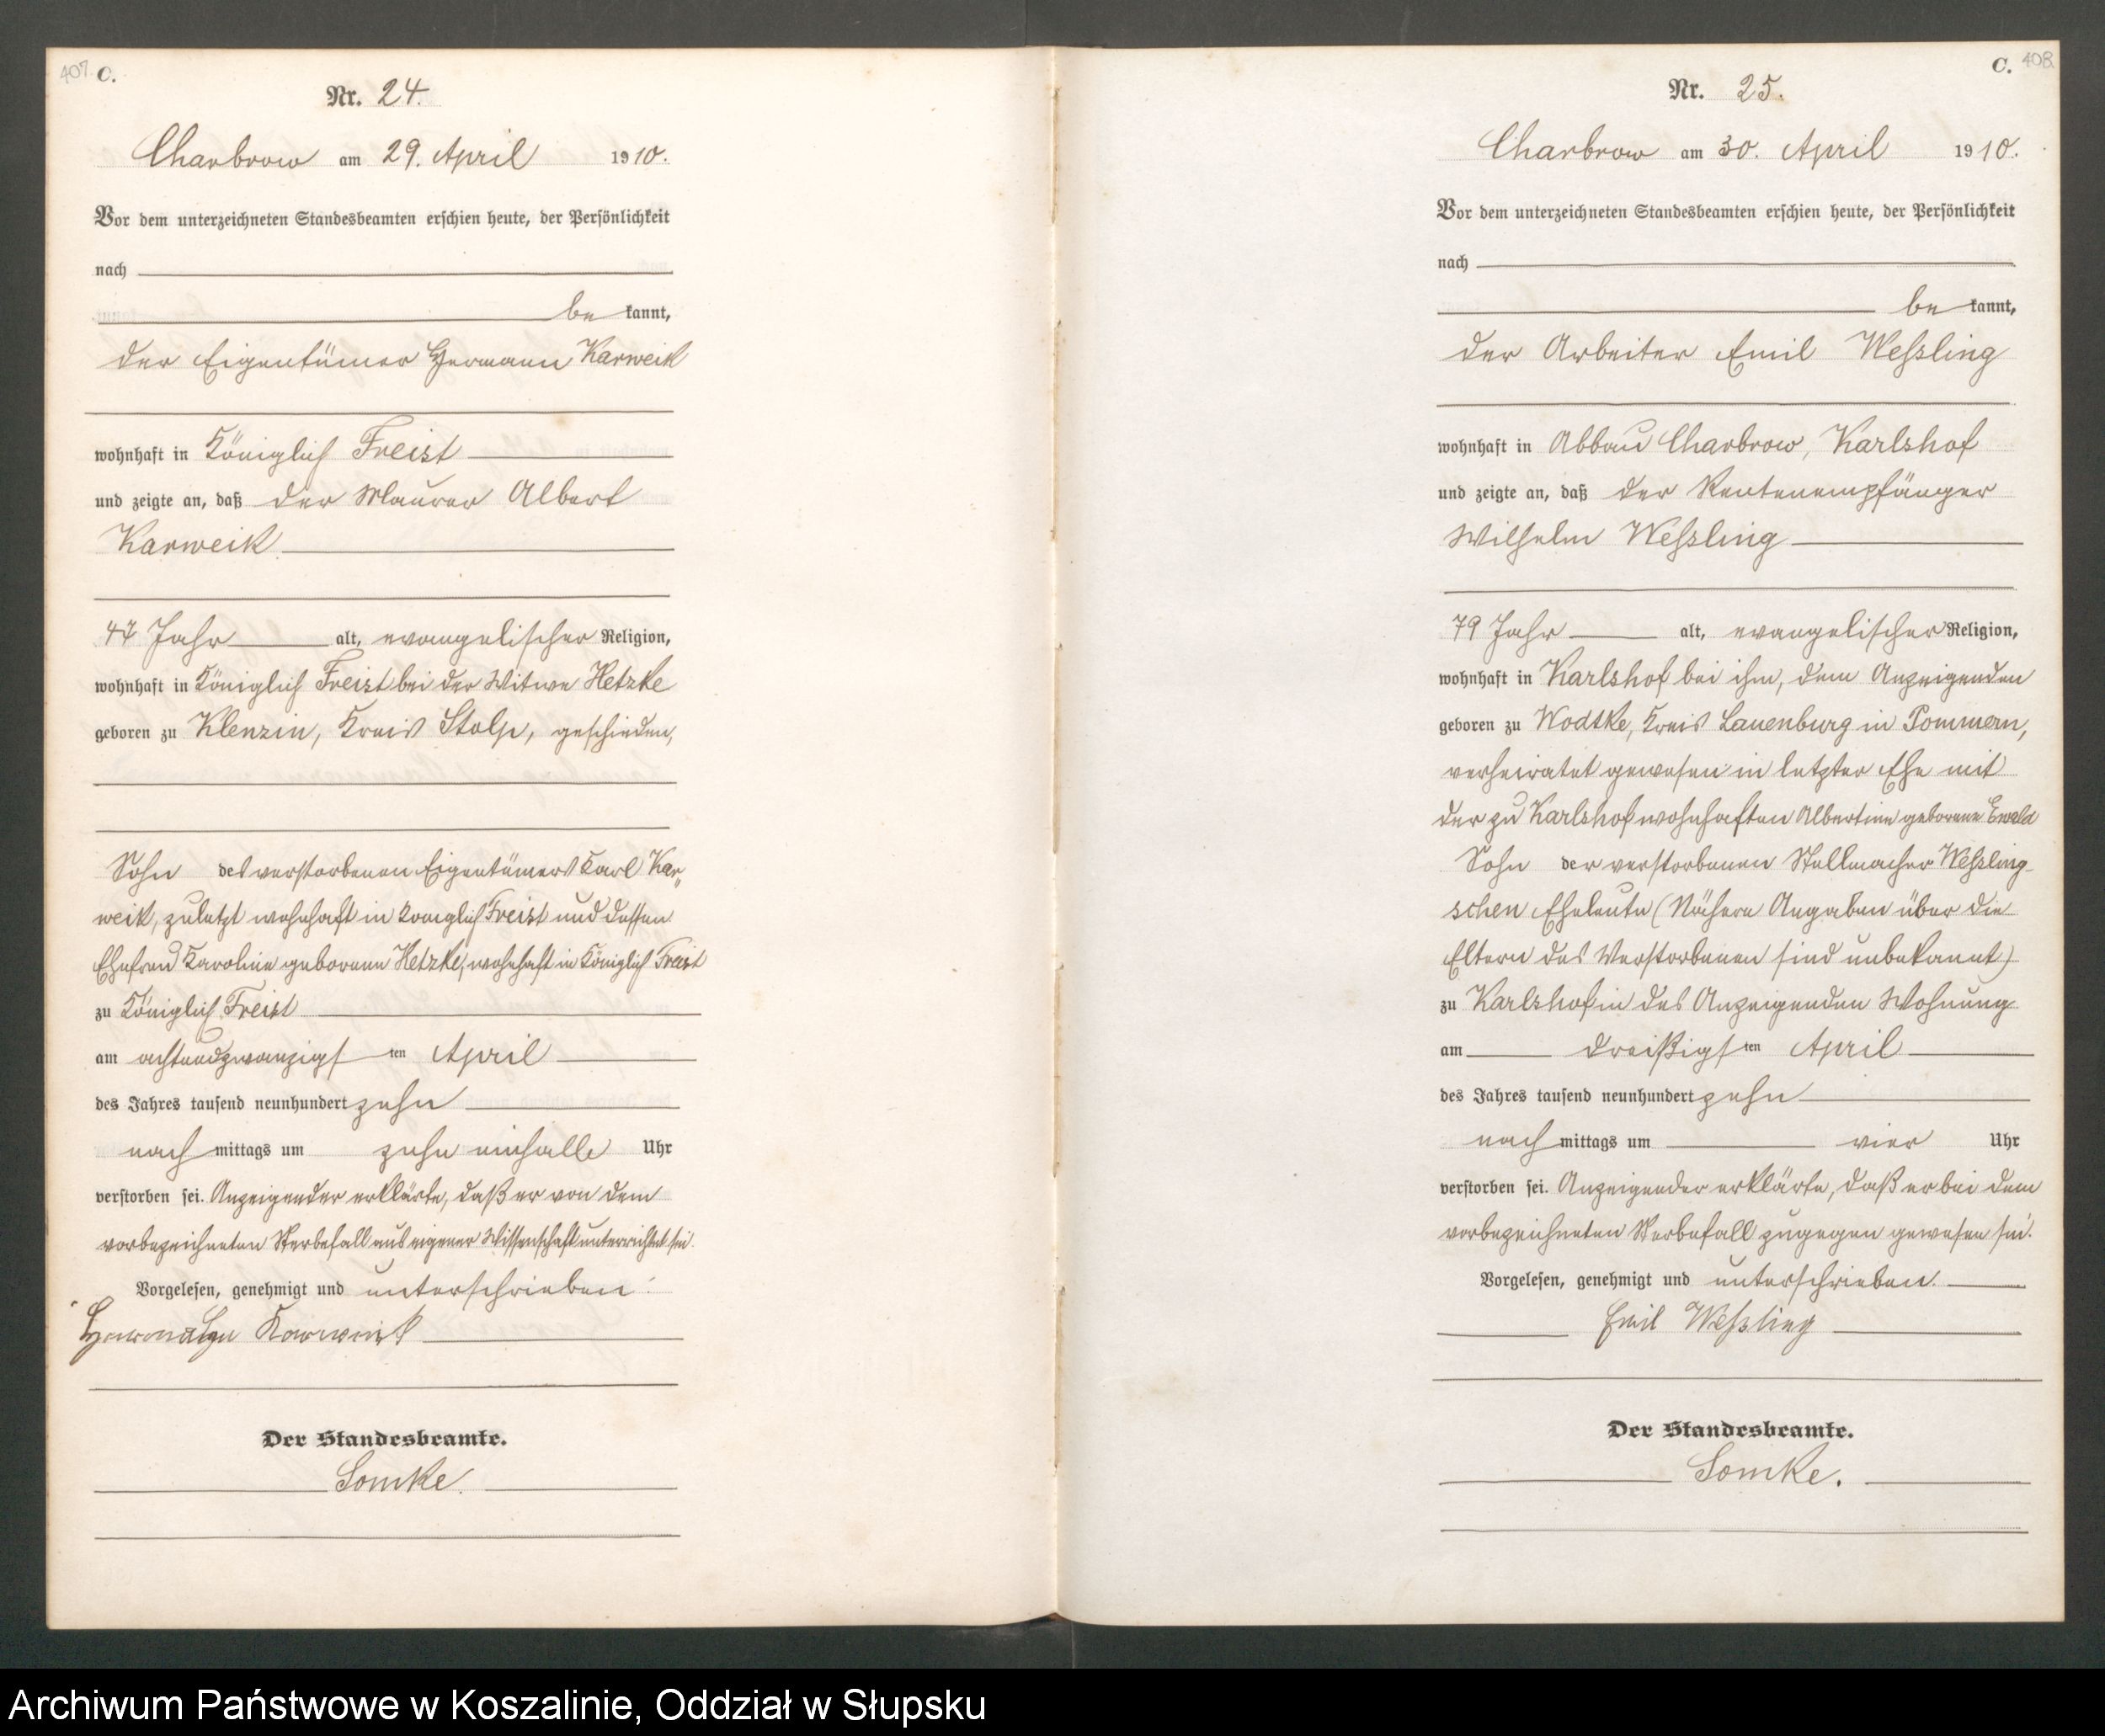 407 C.
Nr. 24.
Charbrow am 29. April 1910.
Vor dem unterzeichneten Standesbeamten erschien heute, der Persönlichkeit
nach
be kannt,
der Eigentümer Hermann Karweik
wohnhaft in Königlich Freist
und zeigte an, daß der Maurer Albert
Karweik
47 Jahr alt, evangelischer Religion,
wohnhaft in Königlich Freist bei der Witwe Hetzke
geboren zu Klenzin, Kreis Stolp, geschieden,
Sohn des verstorbenen Eigentümers Karl Kar„
weik, zuletzt wohnhaft in Königlich Freist und dessen
Ehefrau Karoline geborene Hetzke, wohnhaft in Königlich Freist
zu Königlich Freist
am achtundzwanzigsten April
des Jahres tausend neunhundert zehn
nach mittags um zehn einhalb Uhr
verstorben sei. Anzeigender erklärte, daß er von dem
vorbezeichneten Sterbefall aus eigener Wissenschaft unterrichtet sei.
Vorgelesen, genehmigt und unterschrieben.
Karweik
Der Standesbeamte.
Somke.
C. 408
Nr. 25.
Charbrow am 30. April 1910.
Vor dem unterzeichneten Standesbeamten erschien heute, der Persönlichkeit
nach
be kannt,
der Arbeiter Emil Weßling
wohnhaft in Abbau Charbrow, Karlshof
und zeigte an, daß der Rentenempfänger
Wilhelm Weßling
79 Jahr alt, evangelischer Religion,
wohnhaft in Karlshof bei ihm, dem Anzeigenden
geboren zu Wodtke, Kreis Lauenburg in Pommern,
verheiratet gewesen in letzter Ehe mit
der zu Karlshof wohnhaften Albertine geborene Ewald
Sohn der verstorbenen Stellmacher Weßling-
schen Eheleute (Nähere Angaben über die
Eltern des Verstorbenen sind unbekannt)
zu Karlshof in des Anzeigenden Wohnung
am dreißigsten April
des Jahres tausend neunhundert zehn
nach mittags um vier Uhr
verstorben sei. Anzeigender erklärte, daß er bei dem
vorbezeichneten Sterbefall zugegen gewesen sei.
Vorgelesen, genehmigt und unterschrieben.
Emil Weßling
Der Standesbeamte.
Somke.
Archiwum Państwowe w Koszalinie, Oddział w Słupsku